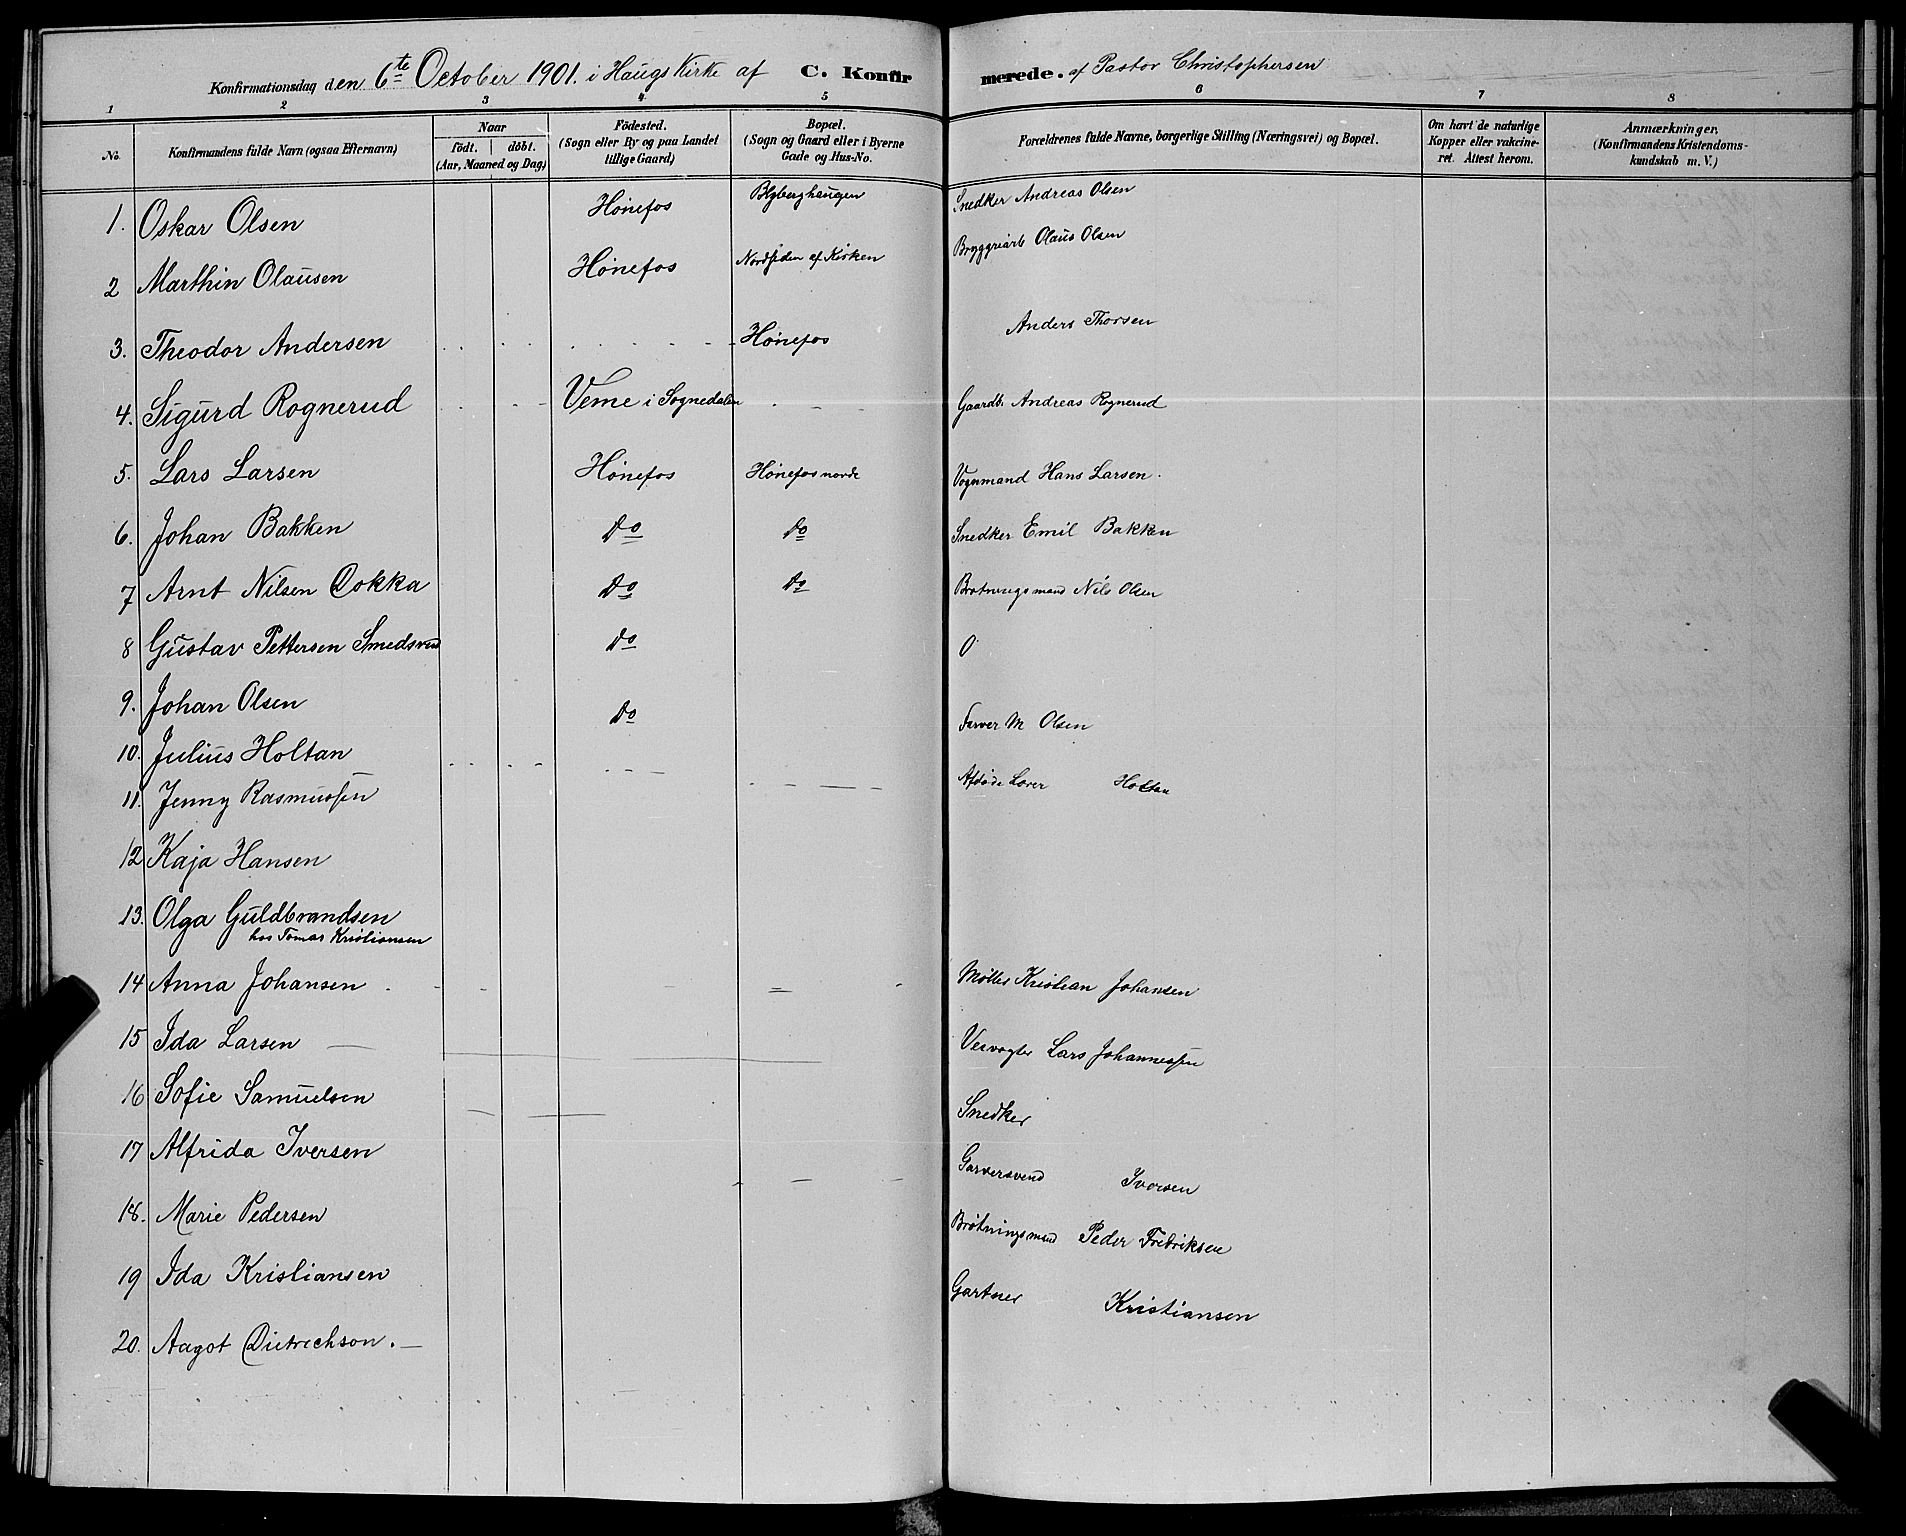 Konfirmationsdag den 6te October 1901. i Haugs Kirke af C. Konfirmerede. af Pastor Christophersen
1 2 3 4 5 6 7 8
No. Konfirmandens fulde Navn (ogsaa Efternavn) Naar født. døbt. (Aar, Maaned og Dag) Fødested. (Sogn eller By og paa Landet tillige Gaard) Bopæl. (Sogn og Gaard eller i Byerne Gade og Hus-No. Forældrenes fulde Navne, borgerlige Stilling (Næringsvei) og Bopæl. Om havt de naturlige Kopper eller vakcineret. Attest herom. Anmærkninger. (Konfirmandens Kristendomskundskab m. V.)
1. Oskar Olsen Hønefos Blyberghaugen Snedker Andreas Olsen
2 Marthin Olausen Hønefos Nordsiden af Kirken Bryggriarb Olaus Olsen
3. Theodor Andersen Hønefos Anders Thorsen
4. Sigurd Rognerud Veme i Sognedalen Gaardb. Andreas Rognerud
5. Lars Larsen Hønefos Hønefos nordre Vognmand Hans Larsen.
6. Johan Bakken Do Do Snedker Emil Bakken
7 Arnt Nilsen Dokka Do Do Brøtningsmand Nils Olsen
8 Gustav Pettersen Smedsrud Do 0
9. Johan Olsen Do Farver M Olsen
10. Julius Holtan Afdøde Lærer Holtan
11. Jenny Rasmussen
12 Kaja Hansen
13. Olga Guldbrandsen
hos Tomas Kristiansen
14 Anna Johansen Møller Kristian Johansen
15 Ida Larsen Veivogter Lars Johannessen
16 Sofie Samuelsen Snedker
17 Alfrida Iversen Garversvend Iversen
18. Marie Pedersen Brøtningsmand Peder Fredriksen
19 Ida Kristiansen Gartner Kristiansen
20. Aagot Dietrichson.